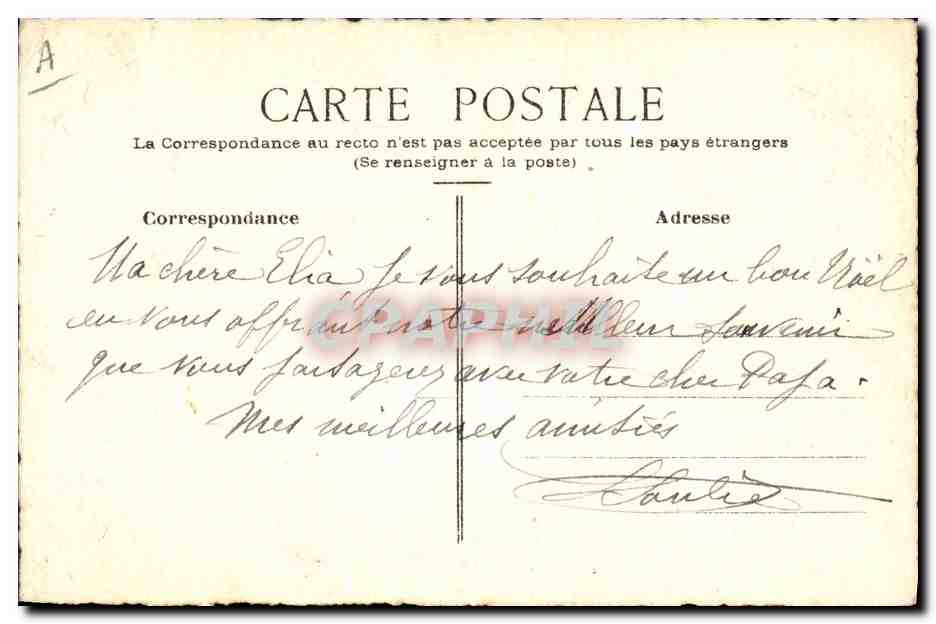 A
CARTE POSTALE
La Correspondance au recto n'est pas acceptée par tous les pays étrangers
(Se renseigner à la poste)
Correspondance
Adresse
Ma chère Elia Je vous souhaite un bon Noël
en vous offrant notre meilleur souvenir
que vous partagerez avec votre cher Papa.
Mes meilleures amitiés
CPAPHIL